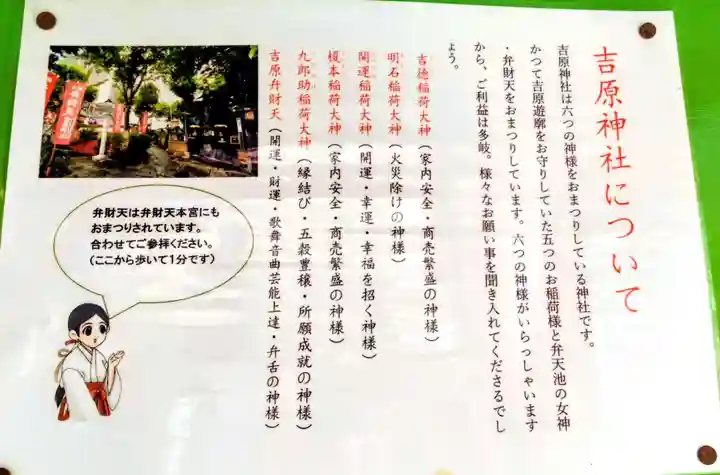 吉原神社について
吉原神社は六つの神様をおまつりしている神社です。
かつて吉原遊廓をお守りしていた五つのお稲荷様と弁天池の女神
・弁財天をおまつりしています。六つの神様がいらっしゃいます
から、ご利益は多岐。様々なお願い事を聞き入れてくださるでし
ょう。
吉徳稲荷大神（家内安全・商売繁盛の神様）
明石稲荷大神（火災除けの神様）
開運稲荷大神（開運・幸運・幸福を招く神様）
榎本稲荷大神（家内安全・商売繁盛の神様）
九郎助稲荷大神（縁結び・五穀豊穣・所願成就の神様）
吉原弁財天（開運・財運・歌舞音曲芸能上達・弁舌の神様）
弁財天は弁財天本宮にも
おまつりされています。
合わせてご参拝ください。
（ここから歩いて1分です）